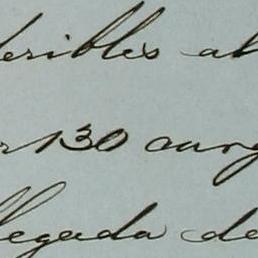 eribles al
r 130 carg
llegada de